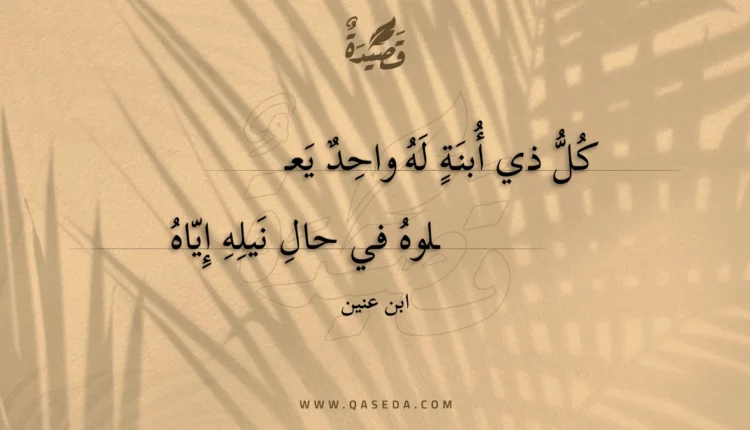 قَصِيْدَةٌ
كُلُّ ذي أُبنَةٍ لَهُ واحِدٌ يَعـ
ـلوهُ في حالِ نَيلِهِ إِيّاهُ
ابن عنين
WWW.QASEDA.COM